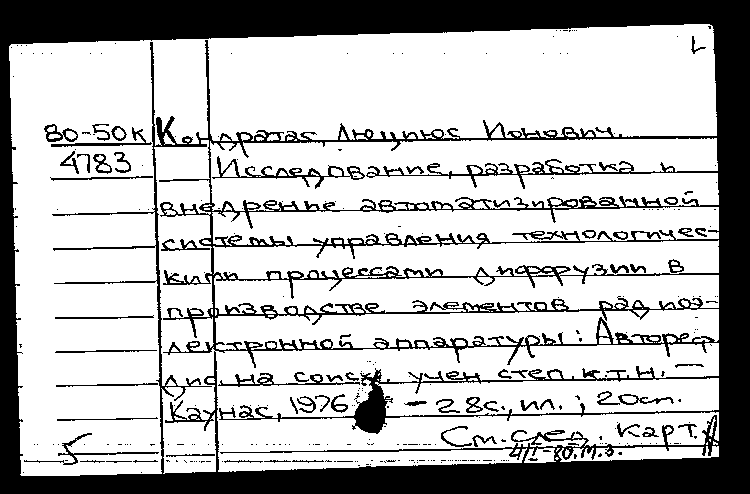 L
80-50к Кондратас, Люциюс Ионович.
4783 Исследование, разработка и
внедрение автоматизированной
системы управления технологичес-
кими процессами диффузии в
производстве элементов радиоэ-
лектронной аппаратуры: Автореф.
дис. на соиск. учен. степ. к.т.н. —
Каунас, 1976 - 28с., ил.; 20см.
См. след. карт.
5 4/I-80.М.З.